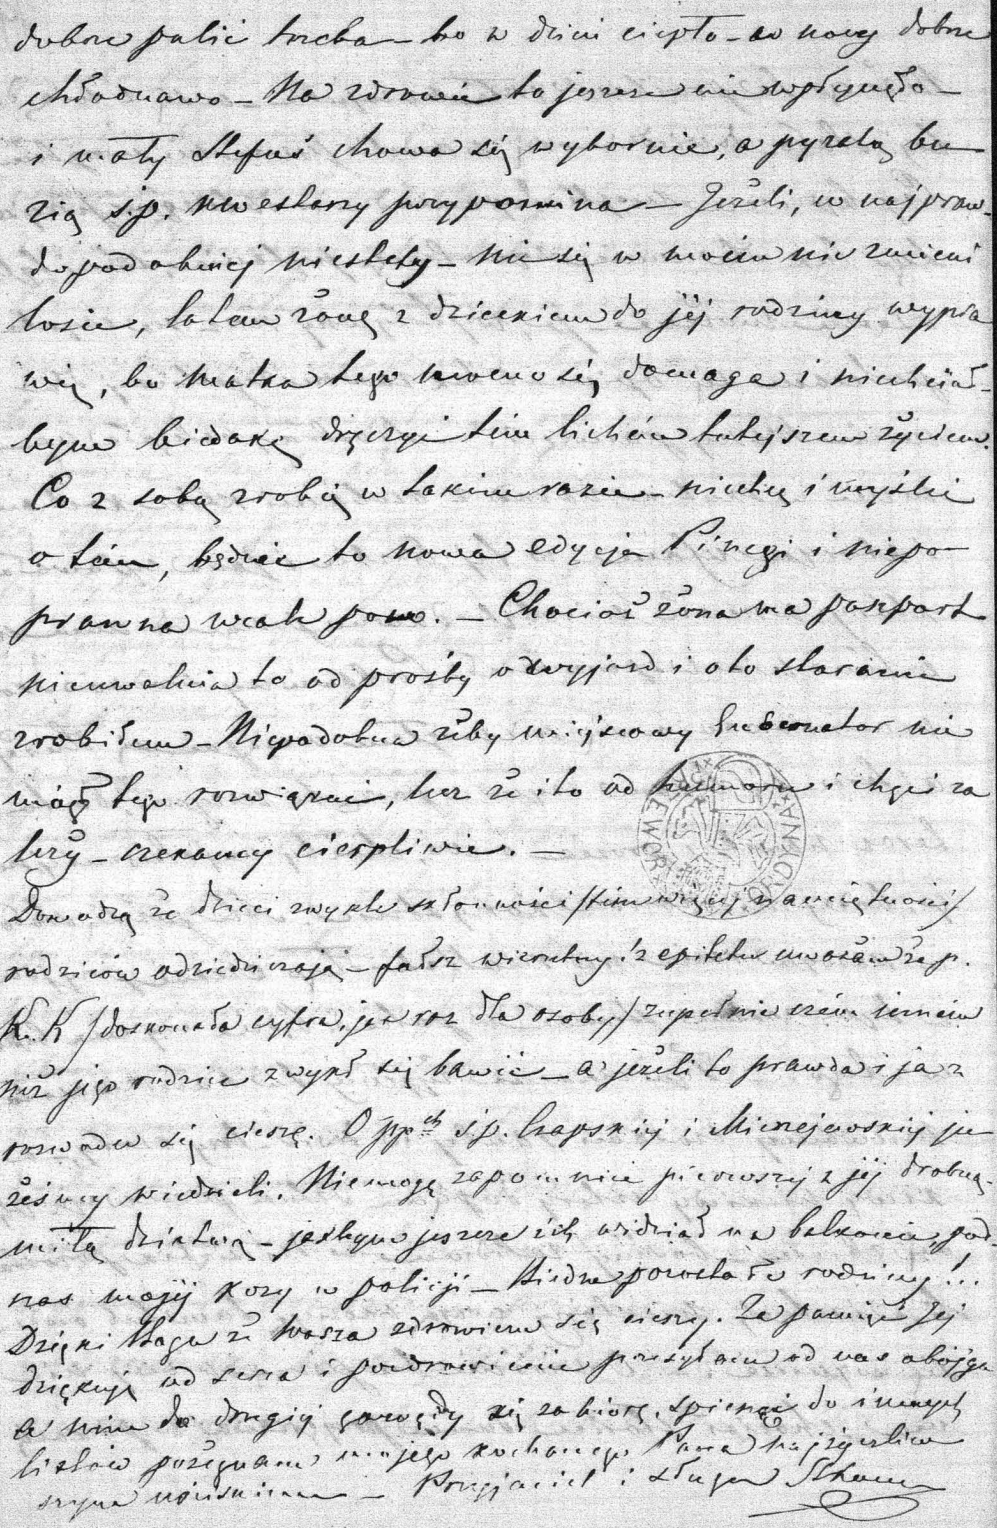 dobrze palić trzeba – bo w dzień ciepło – a w nocy dobrze
chłodnawo – Na zdrowie to jeszcze nie wpłynęło –
i mały Stefuś chowa się wybornie, a pyzatą bu
zią ś.p. kwestarzy przypomina – Jeżeli, co najpraw-
dopodobniej niestety – nie się w moim nie zmieni
losie, latem żonę z dzieckiem do jéj rodziny wypra
wię, bo matka tego mocno się domaga i niechciał-
bym biedaką dręczyć tém lichém tutejszem życiem.
Co z sobą zrobię w takim razie – niechcę i myśleć
o tém, będzie to nowa edycja Pinegi i niepo-
prawna wcale. – Chociaż żona ma paszport
nieuwalnia to od prośby o wyjazd i oto staranie
zrobiłem – Niepodobna żeby miejscowy Gubernator nie
mógł tego rozwiązać, lecz że i to od humoru i chęci za
leży – czekamy cierpliwie. –
Dowodzą że dzieci zwykle skłonności /tém więcej namiętności/
rodziców odziedziczają – fałsz wierutny i z epitetu uważam że p.
K. K /doskonała cyfra, jak raz dla osoby/ zupełnie czém inném
niż jego rodzice zwykł się bawić – a jeżeli to prawda i ja z
rozwodu się cieszę. O pp.ch ś.p. Czapskiej i Mierzejewskiej ju
żeśmy wiedzieli. Niemogę zapomnieć pierwszej z jéj drobną
miłą dziatwą – jakbym jeszcze ich widział na balkonie pod-
czas mojéj kozy w policji – Biedne pozostałe rodziny!..
Dzięki Bogu że Wasza zdrowiem się cieszy. Za pamięć Jej
dziękuję od serca i pozdrowienie przesyłam od nas obojga
a nim do drugiej gawędy się zabiorę, spiesząc do innych
listów pożegnam mojego kochanego Pana najżyczliw
szym uściskiem – Przyjaciel i sługa